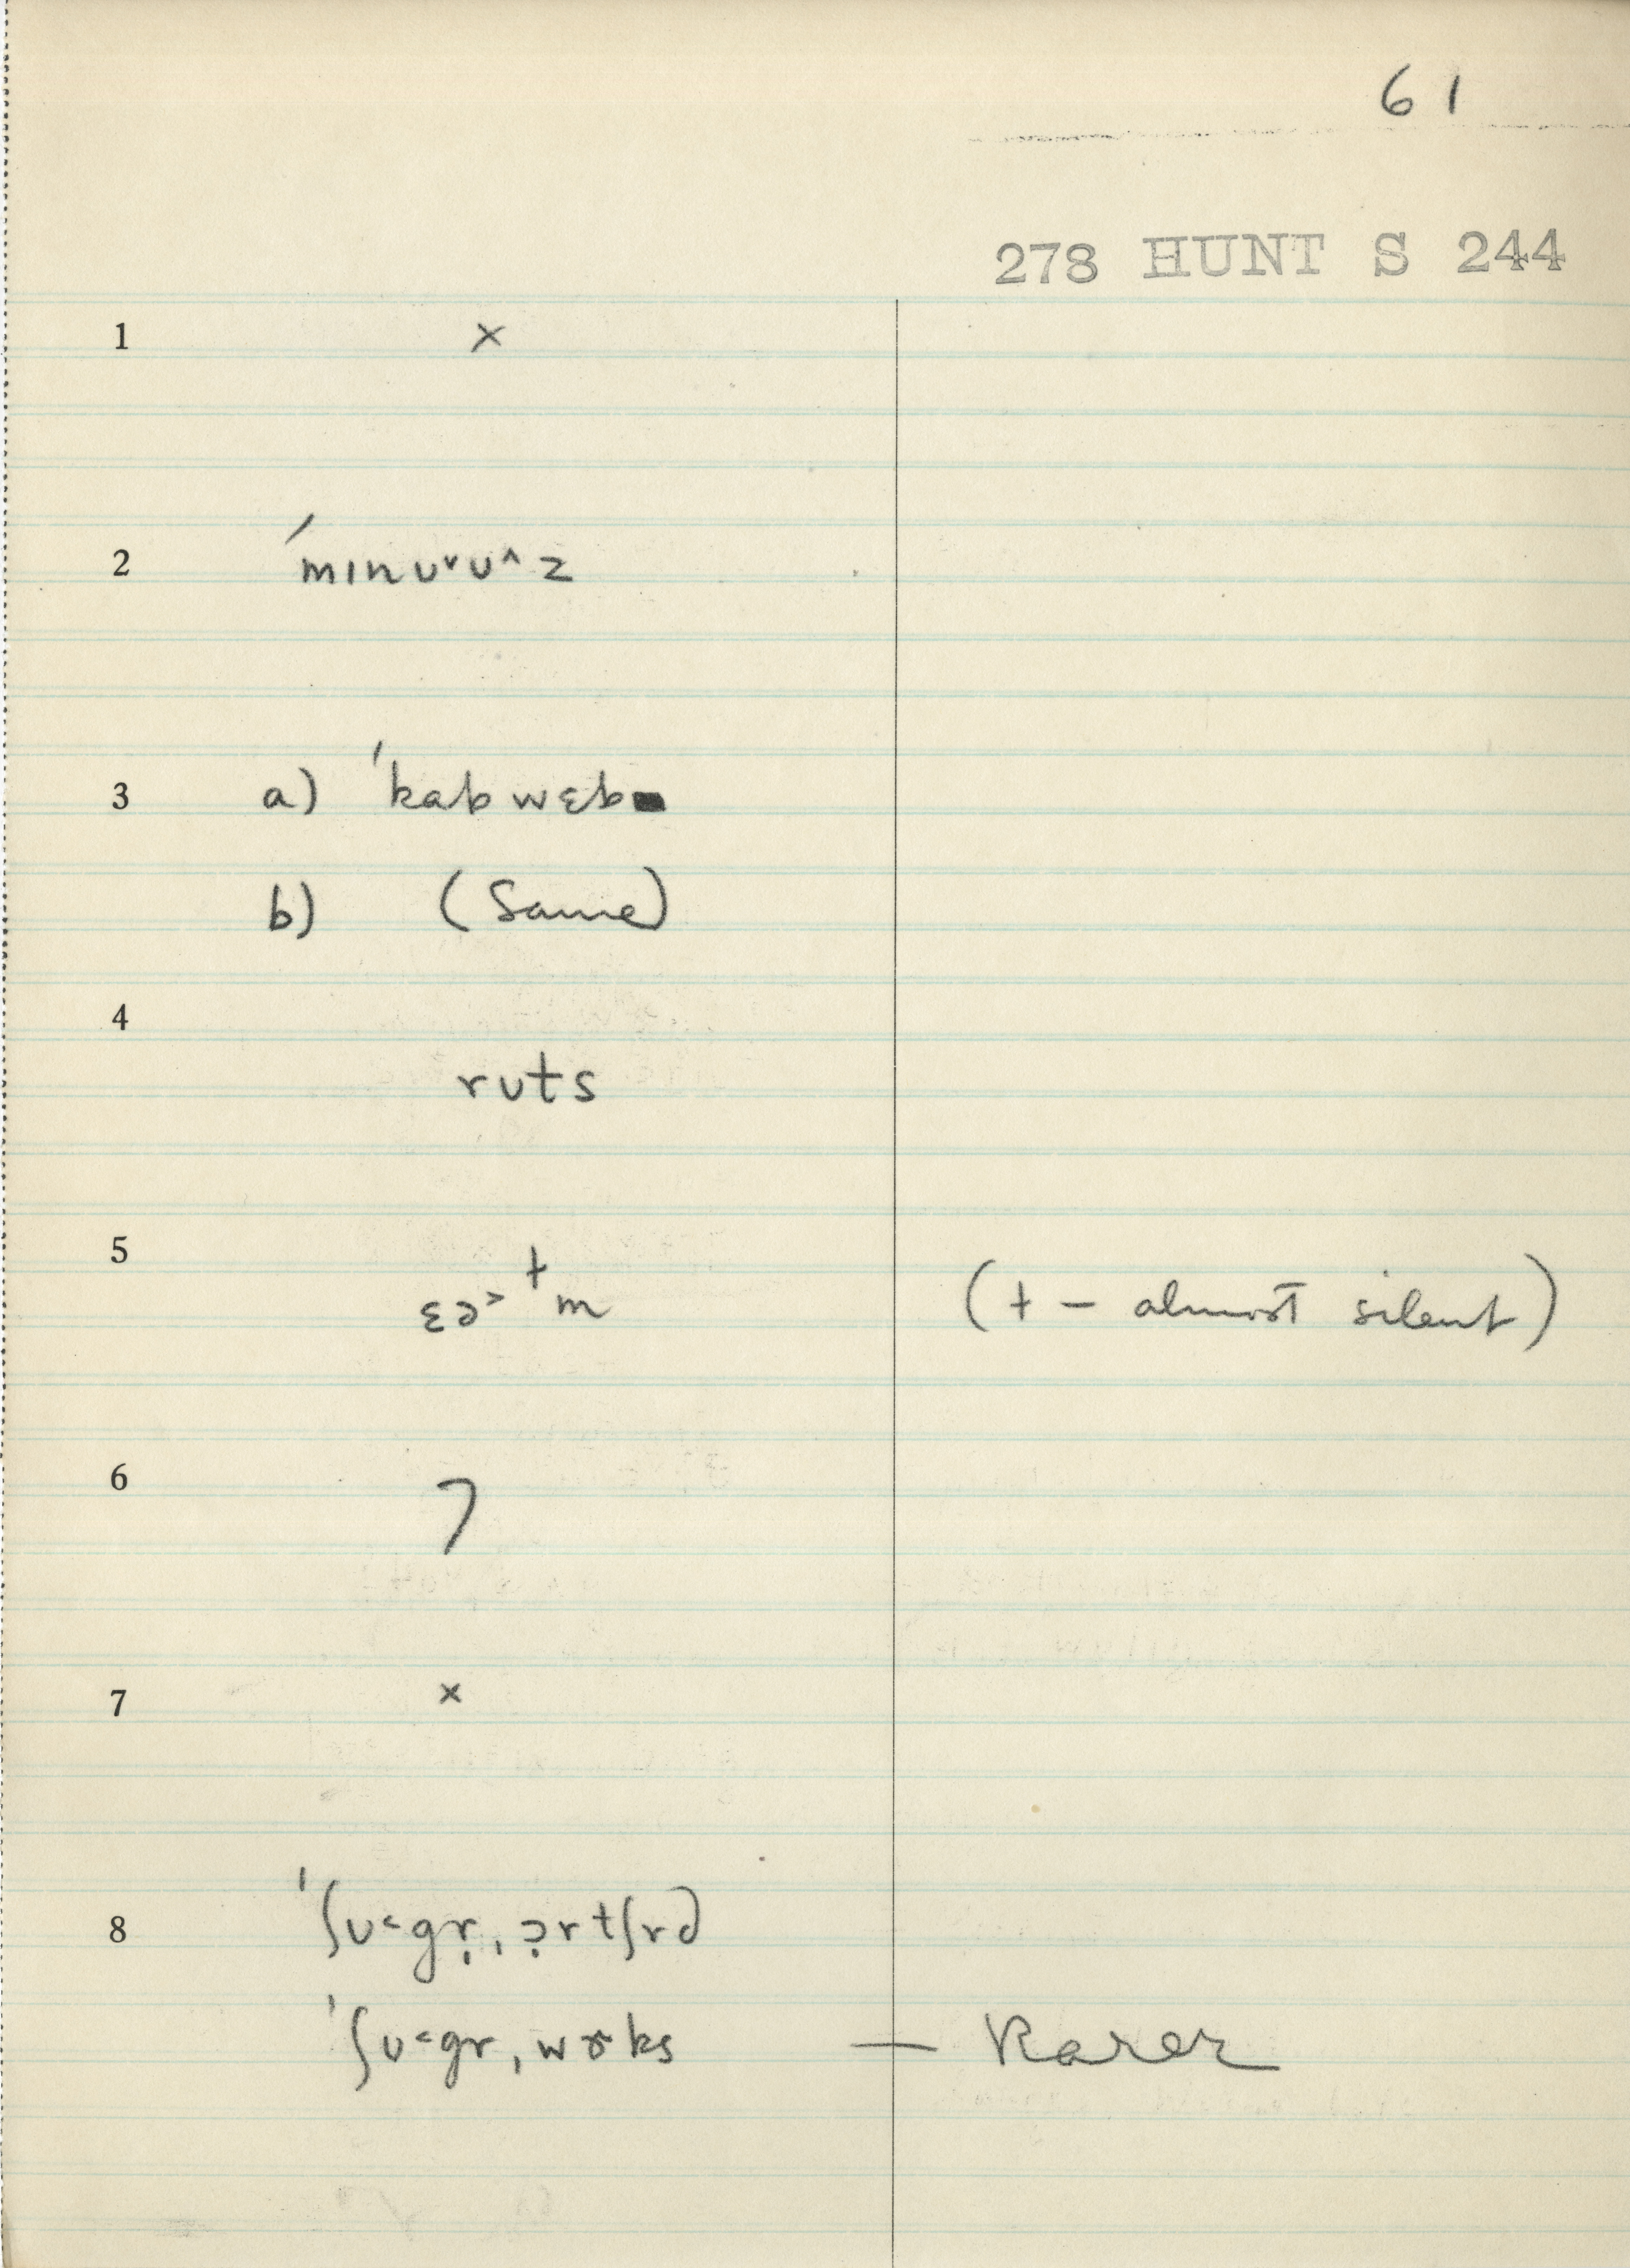 61
278 HUNT S 244
1 ×
2 ˈmɪnʊ˅ʊ˄z
3 a) ˈkabwɛb
b) (Same)
4
rʊts
5 ɛə˃ᵗm (t – almost silent)
6 ?
7 ×
8 ˈʃʊ˂gr̩ˌɔrtʃrd
ˈʃʊ˂grˌwɚks — Rarer